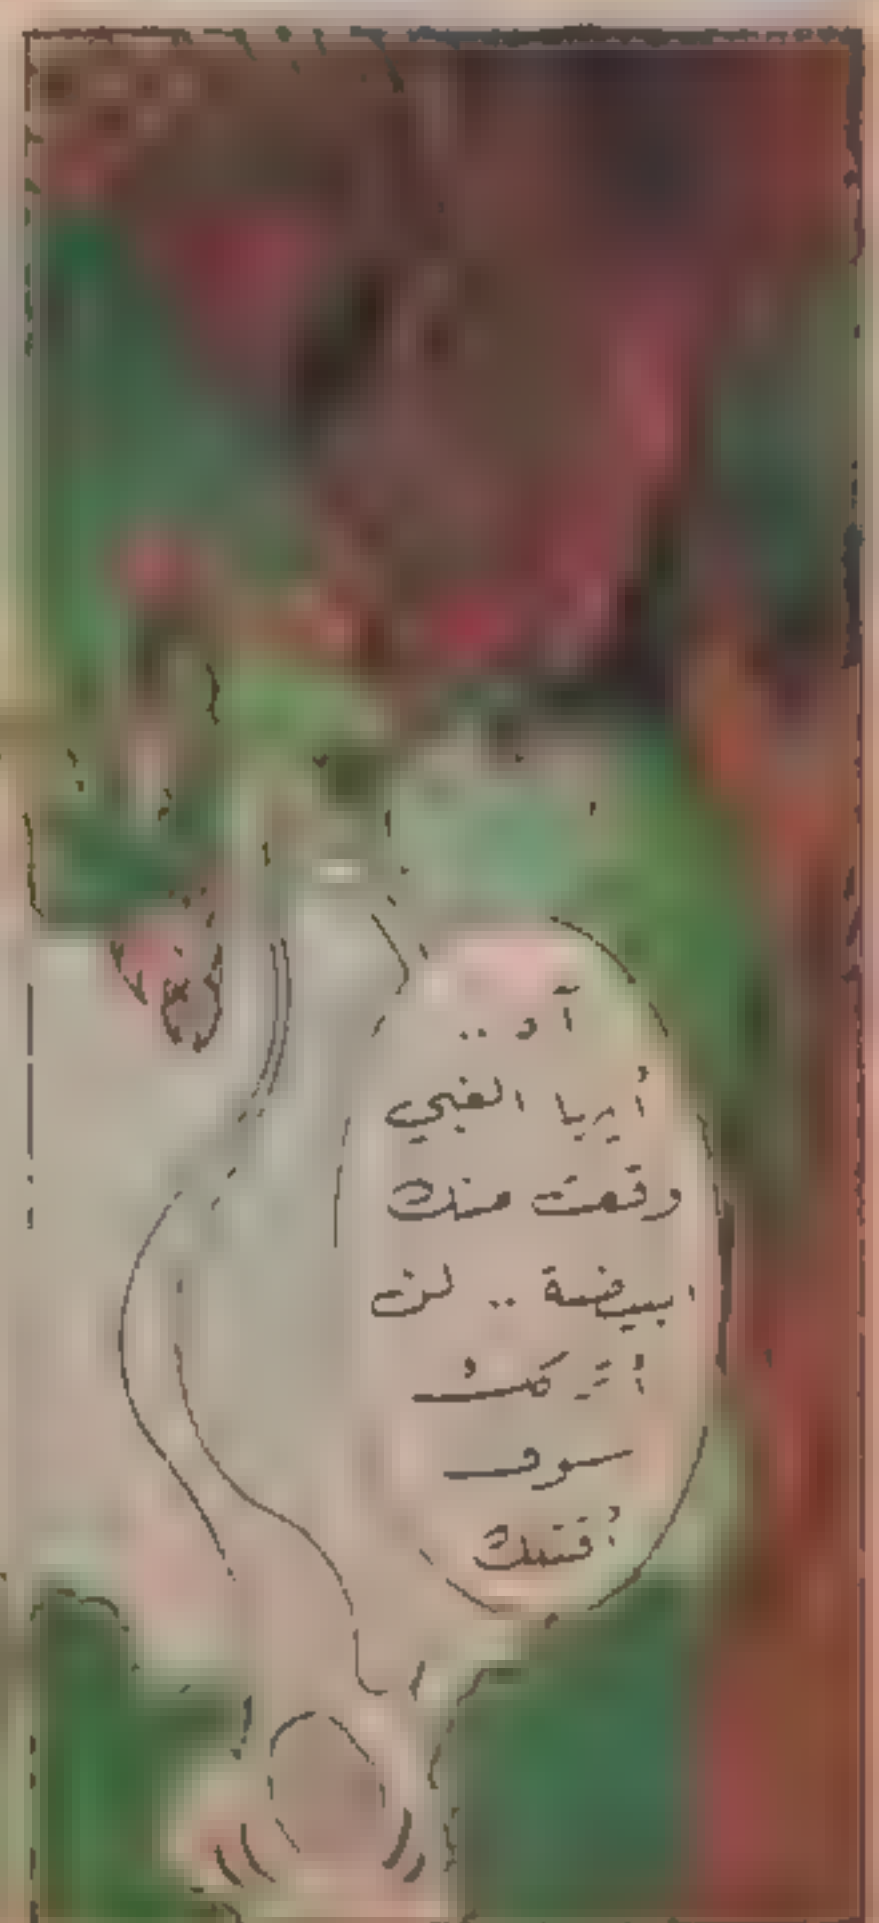 آه ..
أيها الغبي
وقعت منك
البيضة .. لن
أتركك
سوف
أقتلك